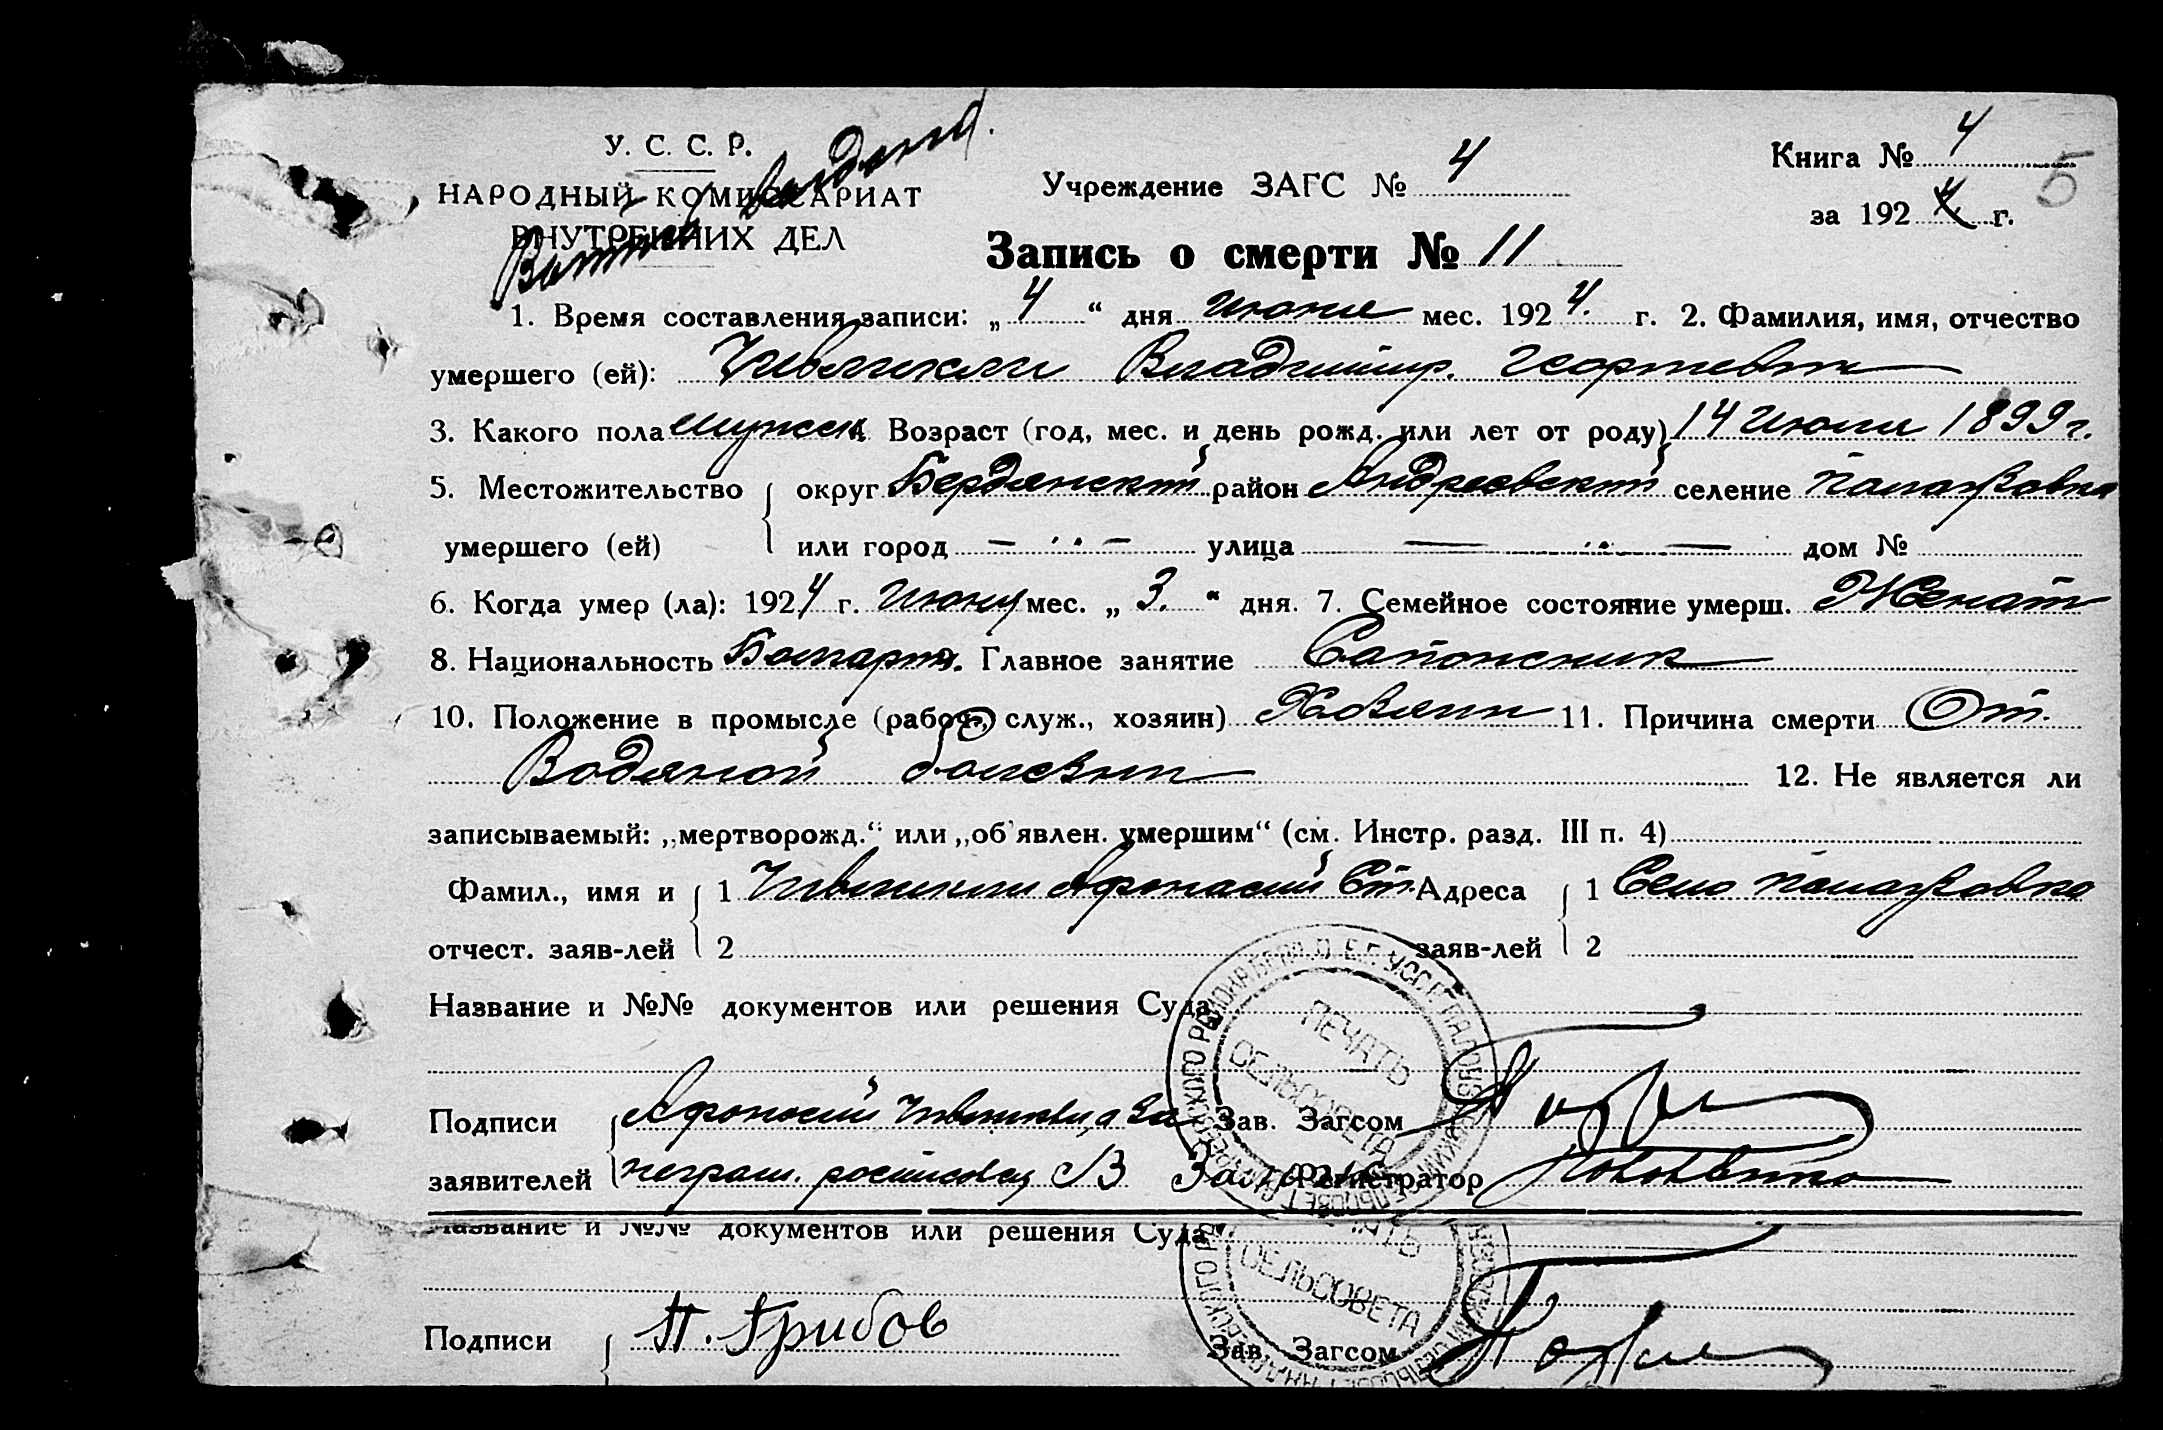 У. С. С. Р.
НАРОДНЫЙ КОМИССАРИАТ
ВНУТРЕННИХ ДЕЛ
Выпись выдана.
Учреждение ЗАГС № 4
Книга № 4
за 1924 г.
5
Запись о смерти № 11
1. Время составления записи: „4“ дня Июня мес. 1924. г. 2. Фамилия, имя, отчество
умершего (ей): Владимир. Георгиевич
3. Какого пола мужск. 4. Возраст (год, мес. и день рожд. или лет от роду) 14 Июля 1899 г.
5. Местожительство округ Бердянский район Андреевский селение Палаузовка
умершего (ей) или город — ·· — улица — ·· — дом №
6. Когда умер (ла): 1924 г. Июня мес. „3.“ дня. 7. Семейное состояние умерш. Женат
8. Национальность Болгарин. Главное занятие Сапожник
10. Положение в промысле (рабоч., служ., хозяин) Хозяин 11. Причина смерти От.
Водяной болезни 12. Не является ли
записываемый: „мертворожд.“ или „об'явлен. умершим“ (см. Инстр. разд. III п. 4)
Фамил., имя и 1 Афонасий Ст. Адреса 1 Село Палаузовка
отчест. заяв-лей 2 заяв-лей 2
Название и №№ документов или решения Суда
ПЕЧАТЬ
СЕЛЬСОВЕТА
Подписи Афонасий а за Зав. Загсом
заявителей неграм. Регистратор
Название и №№ документов или решения Суда
СЕЛЬСОВЕТА
Подписи П. Грибов Зав. Загсом